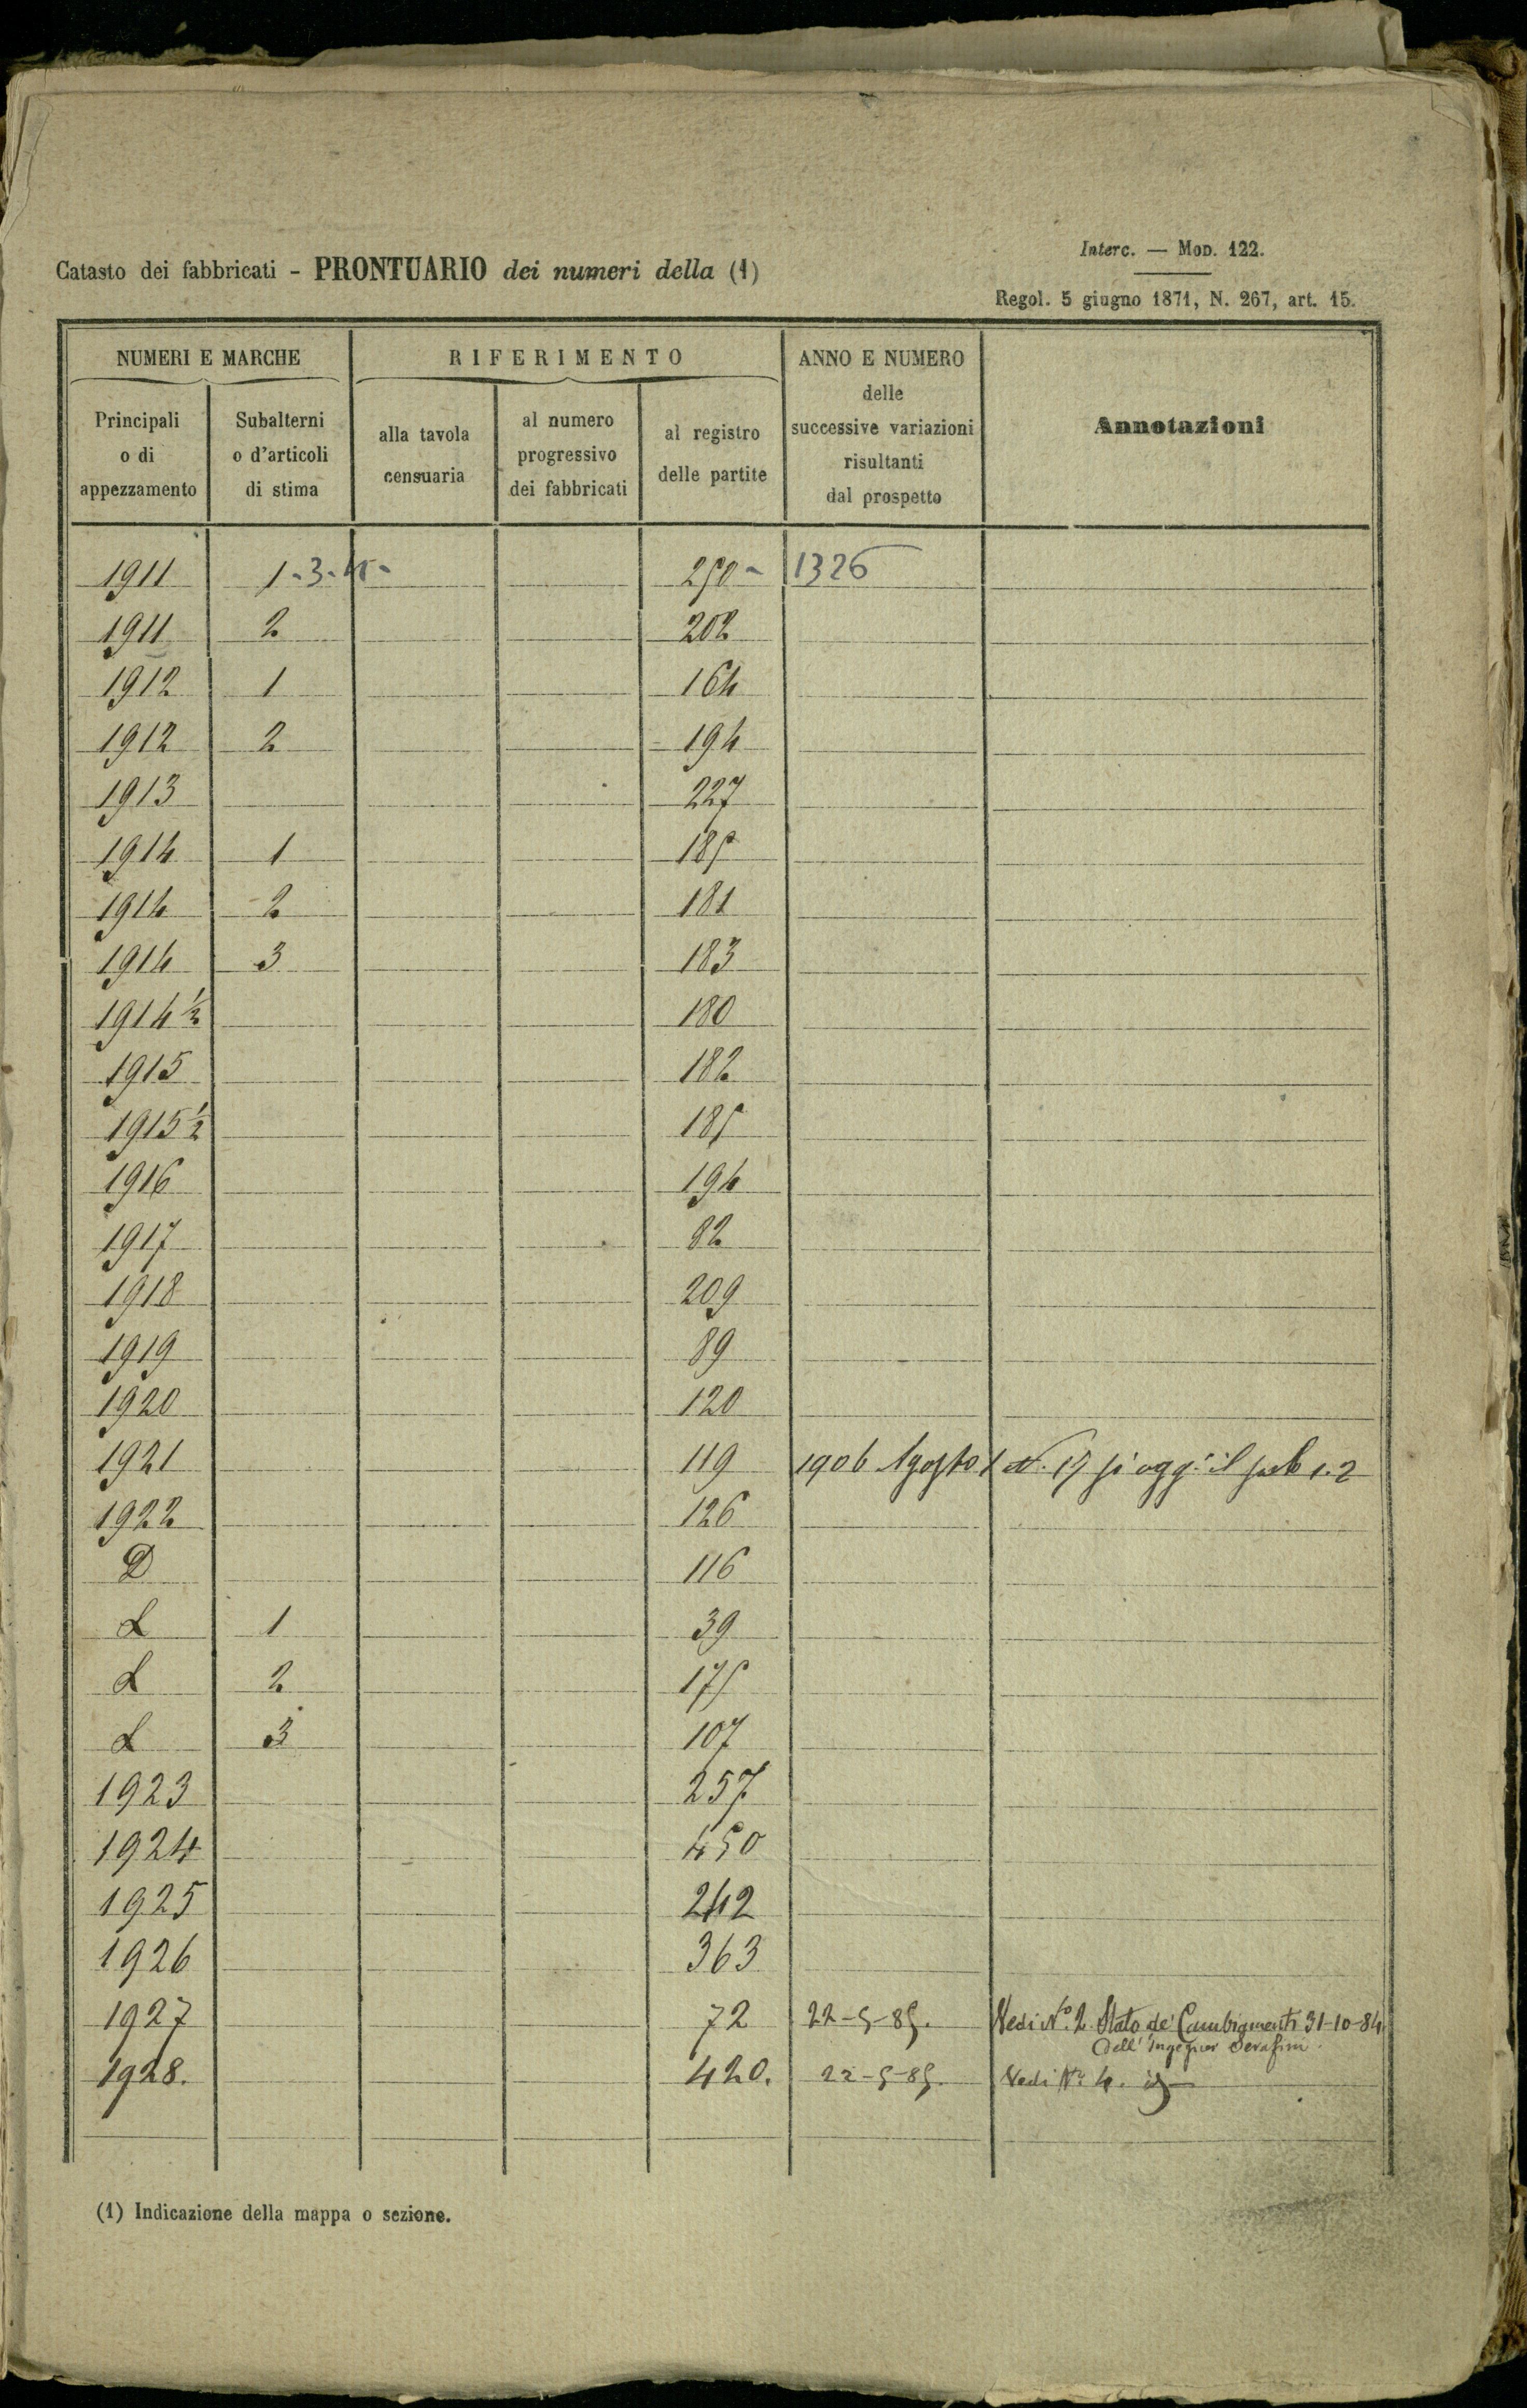 Interc. — Mod. 122.
Catasto dei fabbricati - PRONTUARIO dei numeri della (1)
Regol. 5 giugno 1871, N. 267, art. 15.
NUMERI E MARCHE RIFERIMENTO ANNO E NUMERO delle successive variazioni risultanti dal prospetto Annotazioni
Principali o di appezzamento Subalterni o d'articoli di stima alla tavola censuaria al numero progressivo dei fabbricati al registro delle partite
1911 1-3-4- 250- 1326
1911 2 202
1912 1 164
1912 2 194
1913 227
1914 1 185
1914 2 181
1914 3 183
1914 ½ 180
1915 182
1915 ½ 185
1916 194
1917 82
1918 209
1919 89
1920 120
1921 119 1906 Agosto 1 N. 17 si agg. il sub 1.2
1922 126
D 116
L 1 39
L 2 175
L 3 107
1923 257
1924 450
1925 242
1926 363
1927 72 22-5-85. Vedi N.º 2 Stato de' Cambiamenti 31-10-84
Dell' Ingegner Serafini.
1928. 420. 22-5-85. Vedi N.º 4. id
(1) Indicazione della mappa o sezione.